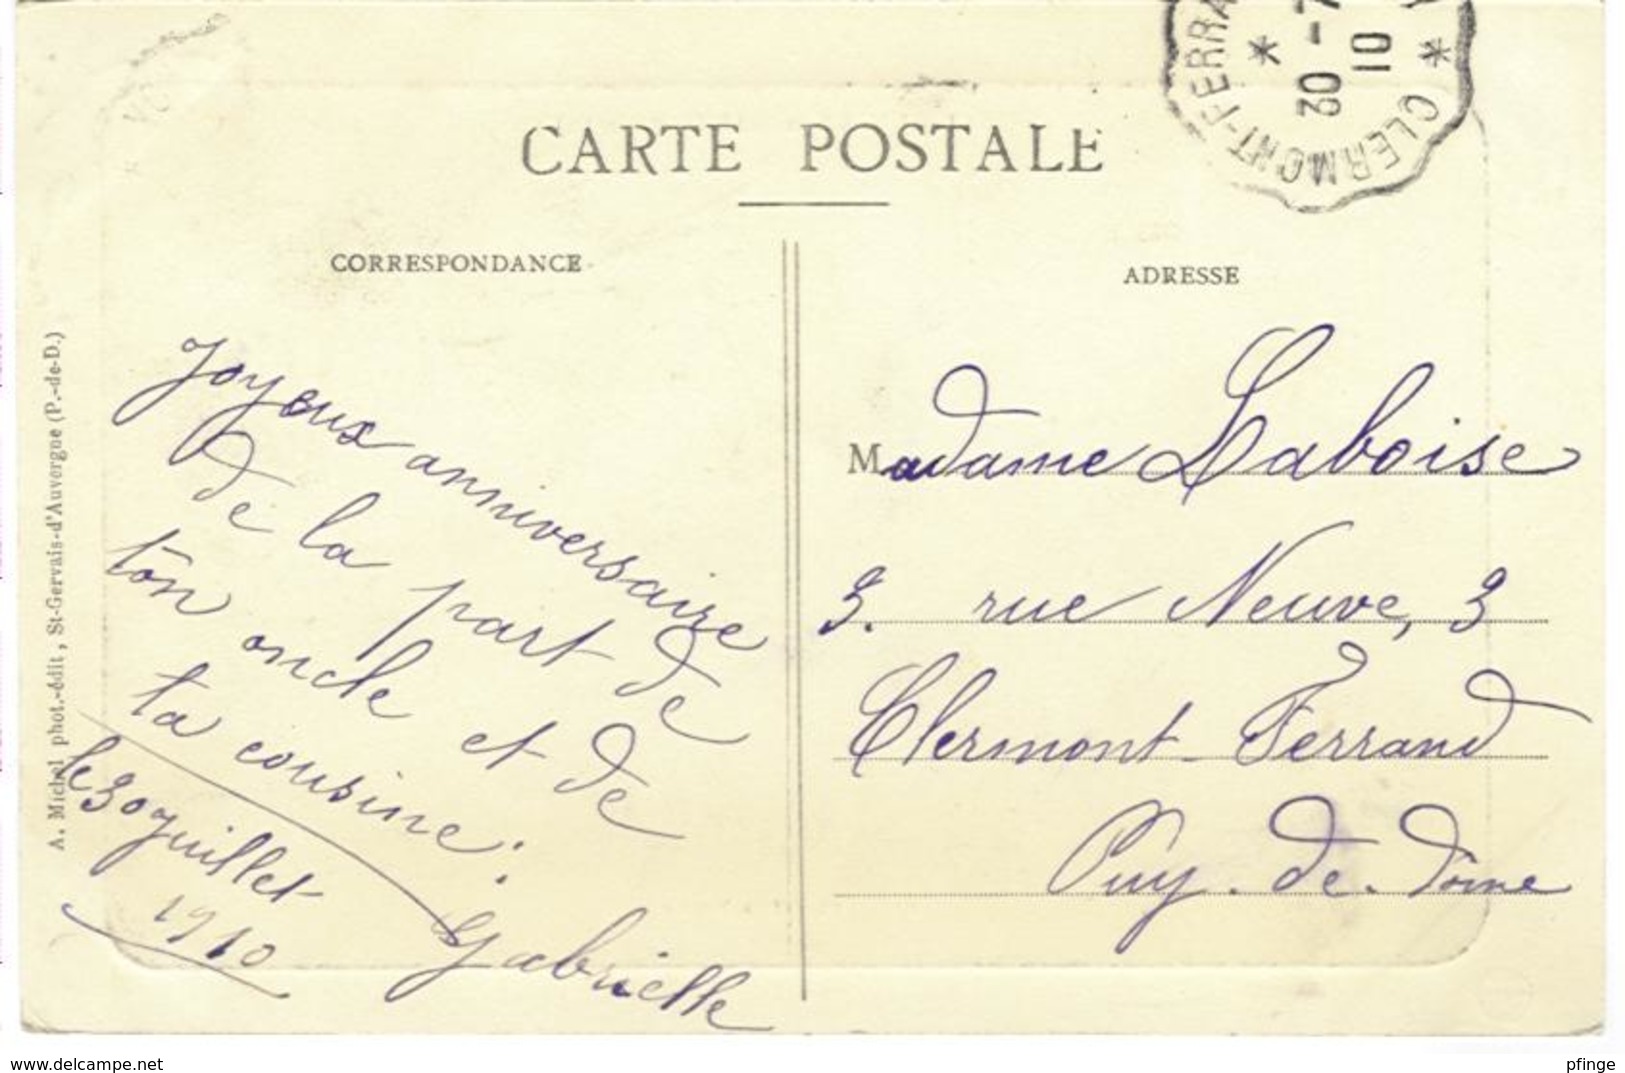 CLERMONT-FERRA
* CLERMONT
02 - 7
10
*
CARTE POSTALE
CORRESPONDANCE
ADRESSE
Joyeux anniversaire
de la part de
ton oncle et de
ta cousine :
le 30 juillet
1910
Gabrielle
Madame Laboise
3. rue Neuve, 3
Clermont-Ferrand
Puy-de-Dôme
A. Michel phot.-édit, St-Gervais-d'Auvergne (P.-de-D.)
www.delcampe.net
pfinge